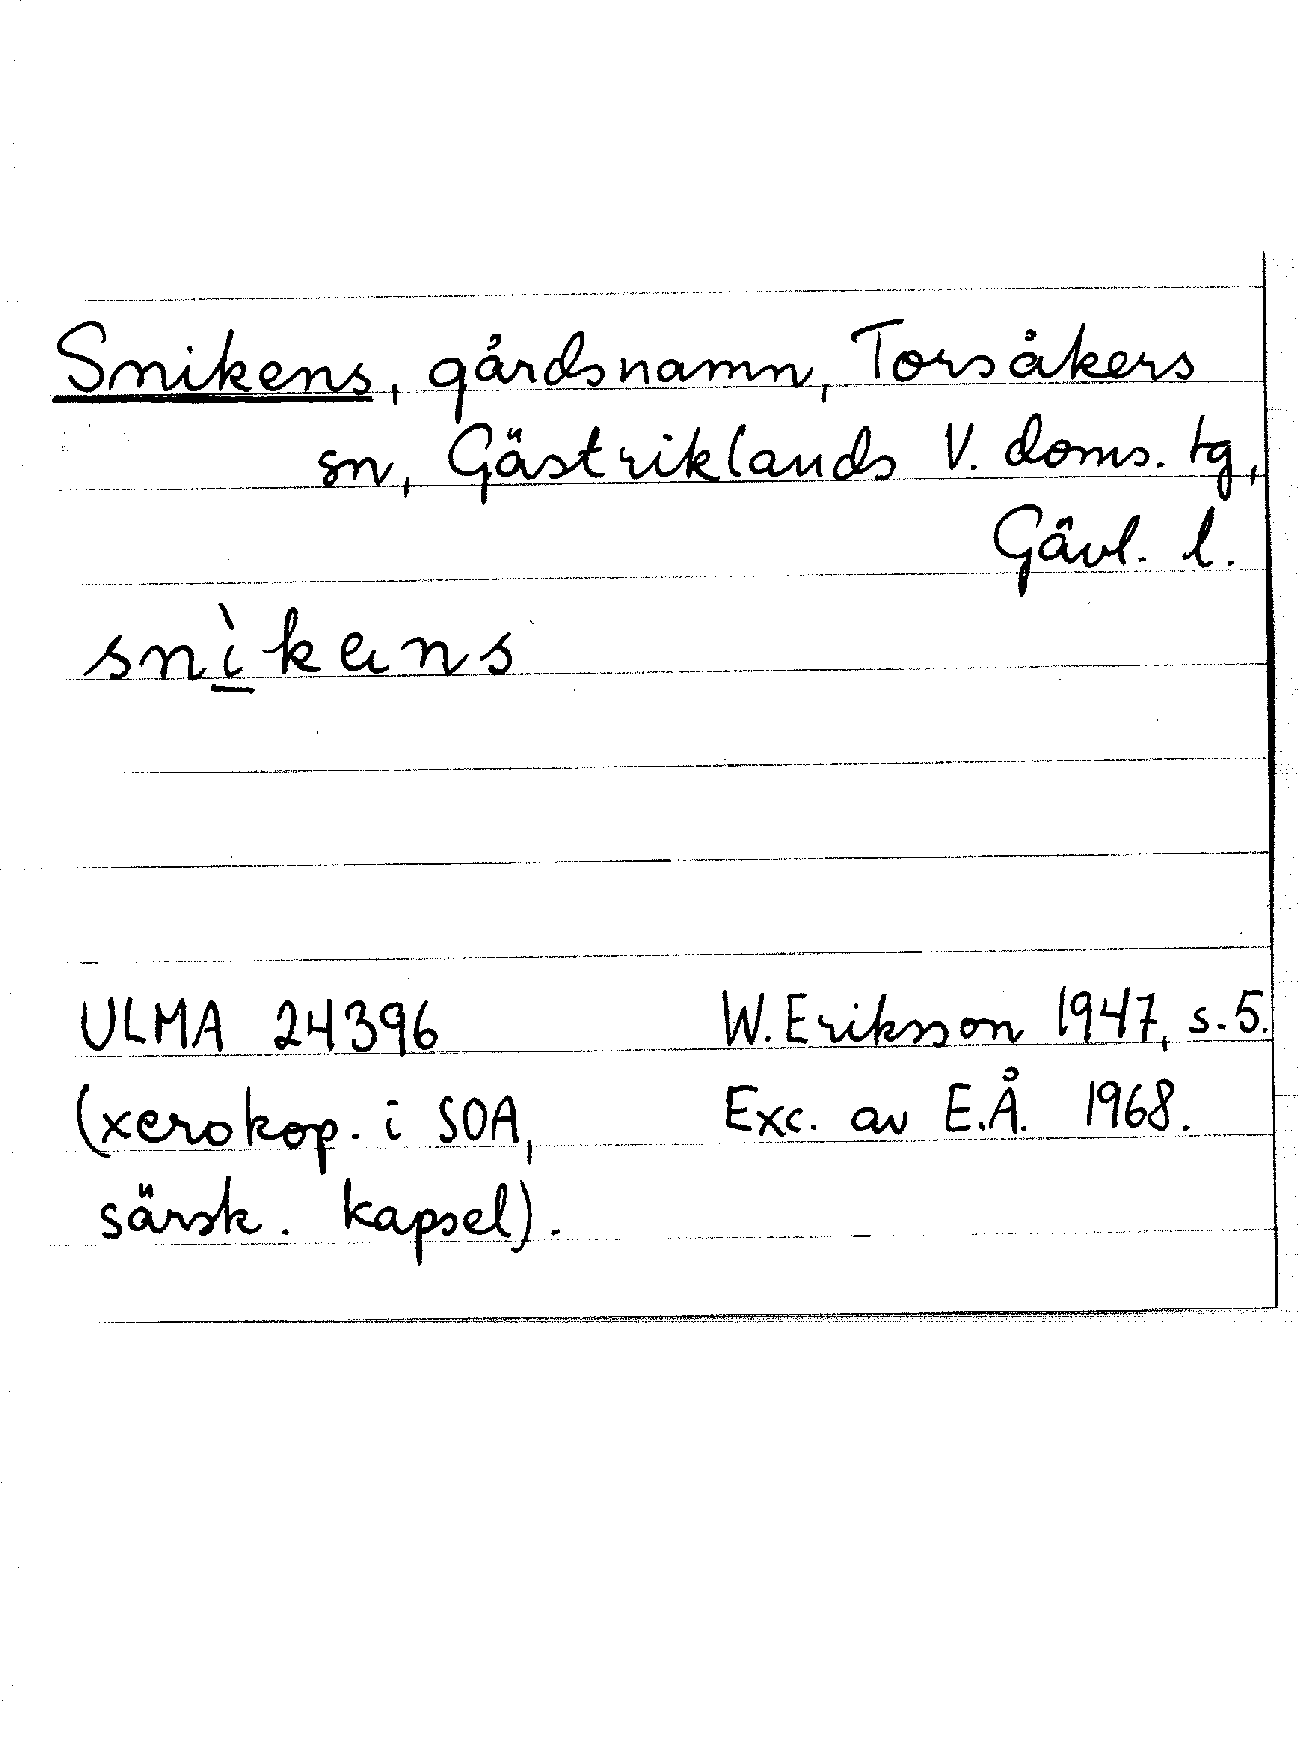 Snikens, gårdsnamn, Torsåkers
sn, Gästriklands V. doms. tg,
Gävl. l.
snì̱kens
ULMA 24396 W. Eriksson 1947, s. 5.
(xerokop. i SOA, Exc. av E.Å. 1968.
särsk. kapsel).